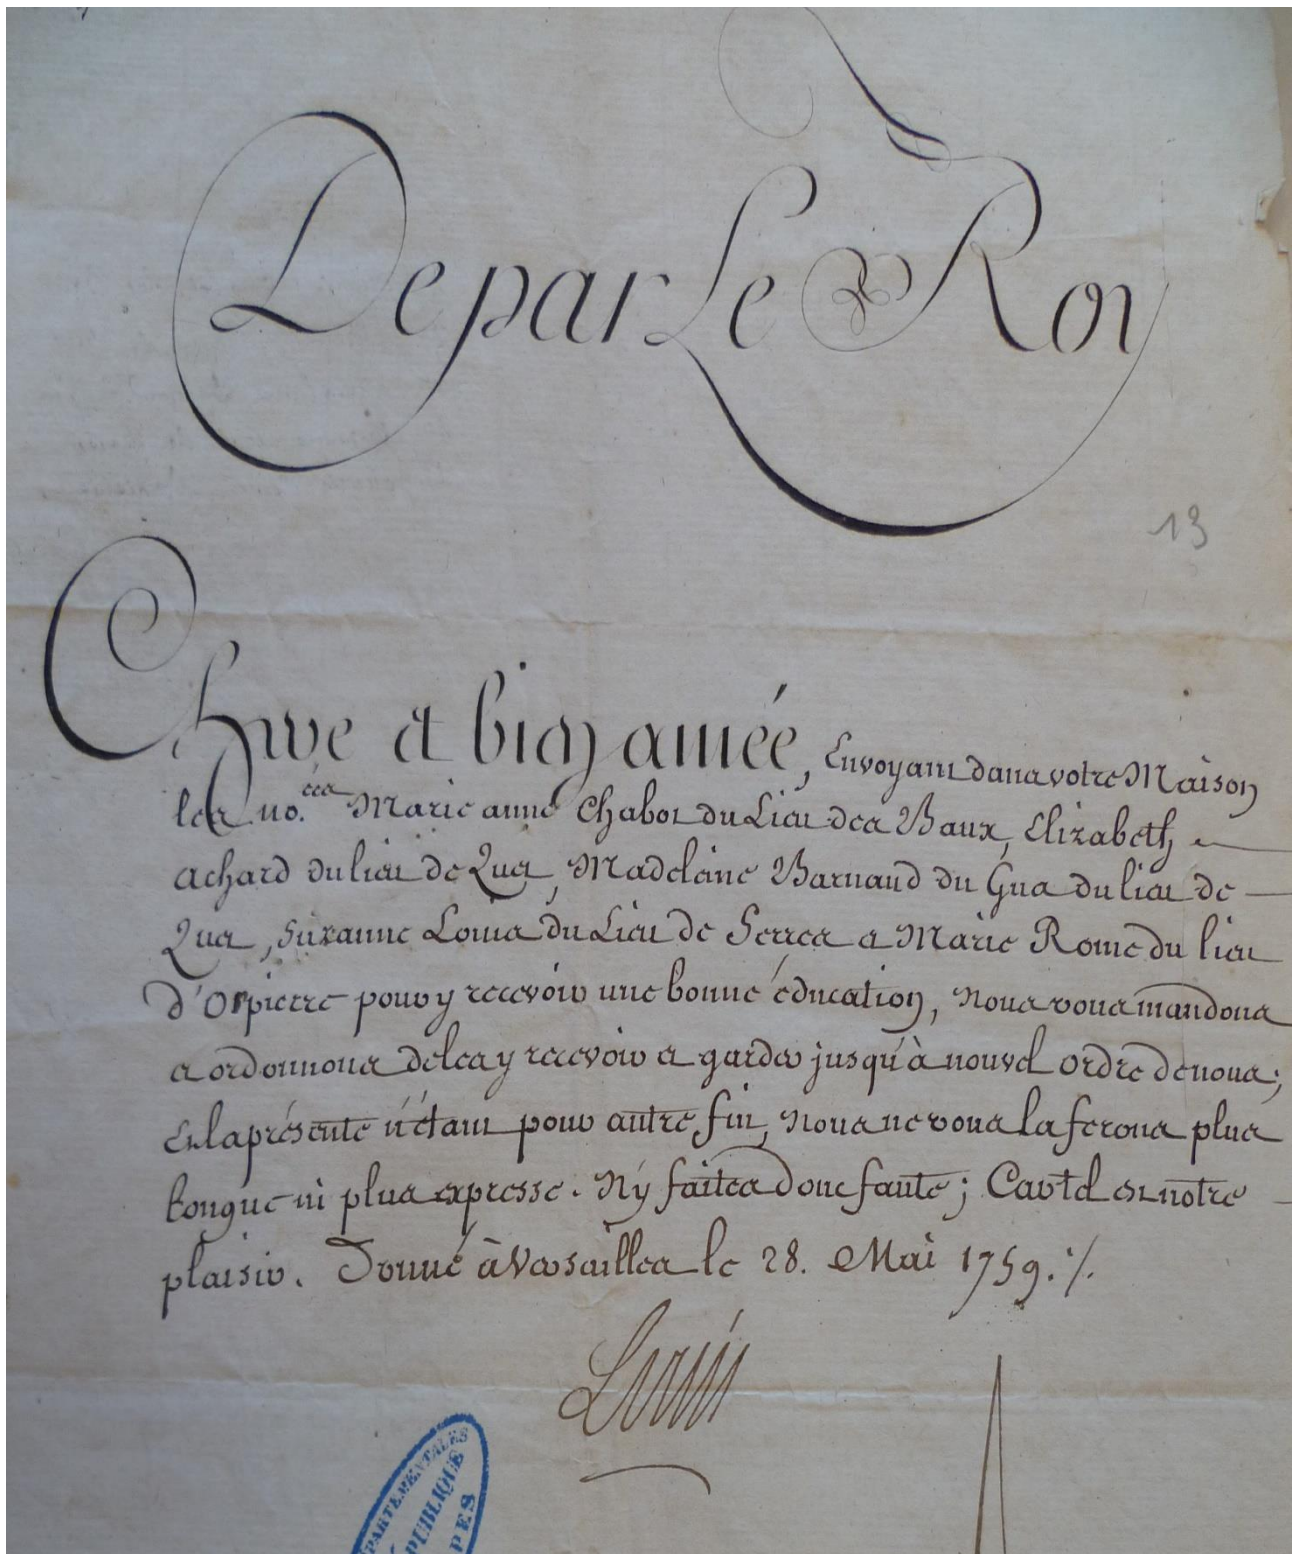 De par Le Roy
13
Chere et bien amée, Envoyant dans votre Maison
les no.ées Marie anne Chabot du Lieu des Baux, Elizabeth
achard du lieu de Quet, Madeleine Barnaud du Gua du lieu de
Quet, Suzanne Louis du Lieu de Serres et Marie Rome du lieu
d'Orpierre pour y recevoir une bonne éducation, Nous vous mandons
et ordonnons de les y recevoir et garder jusqu'à nouvel ordre de nous;
Et la présente n'étant pour autre fin, Nous ne vous la ferons plus
longue ni plus expresse. N'y faites donc faute; Car tel est notre
plaisir. Donné à Versailles le 28. Mai 1759. ./.
Louis
PARTEMENTALES
PUBLIQUE
PES